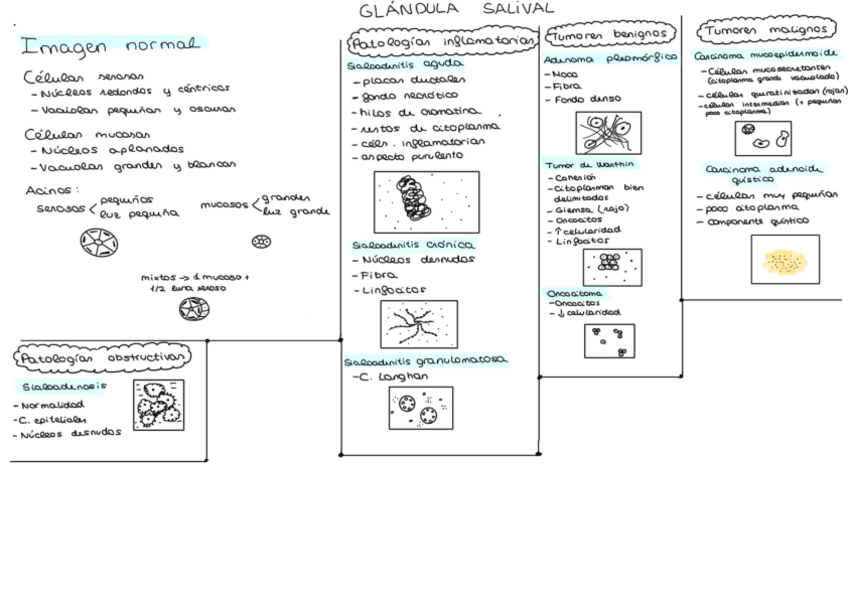 GLÁNDULA SALIVAL
Imagen normal
Células serosas
- Núcleos redondos y céntricos
- Vacuolas pequeñas y oscuras
Células mucosas
- Núcleos aplanados
- Vacuolas grandes y blancas
Acinos:
serosos < pequeños
luz pequeña
mucosos < grandes
luz grande
mixtos → 1 mucoso +
1/2 luna seroso
Patologías obstructivas
Sialoadenosis
- Normalidad
- C. epiteliales
- Núcleos desnudos
Patologías inflamatorias
Sialoadenitis aguda
- placas ductales
- fondo necrótico
- hilos de cromatina
- restos de citoplasma
- céls. inflamatorias
- aspecto purulento
Sialoadenitis crónica
- Núcleos desnudos
- Fibra
- Linfocitos
Sialoadenitis granulomatosa
- C. Langhan
Tumores benignos
Adenoma pleomórfico
- Moco
- Fibra
- Fondo denso
Tumor de Warthin
- Cohesión
- Citoplasmas bien
delimitados
- Giemsa (rojo)
- Oncocitos
- ↑ celularidad
- Linfocitos
Oncocitoma
- Oncocitos
- ↓ celularidad
Tumores malignos
Carcinoma mucoepidermoide
- Células mucosecretantes
(citoplasma grande vacuolado)
- células queratinizadas (rojas)
- células intermedias (+ pequeñas
poco citoplasma)
Carcinoma adenoide
quístico
- células muy pequeñas
- poco citoplasma
- componente quístico